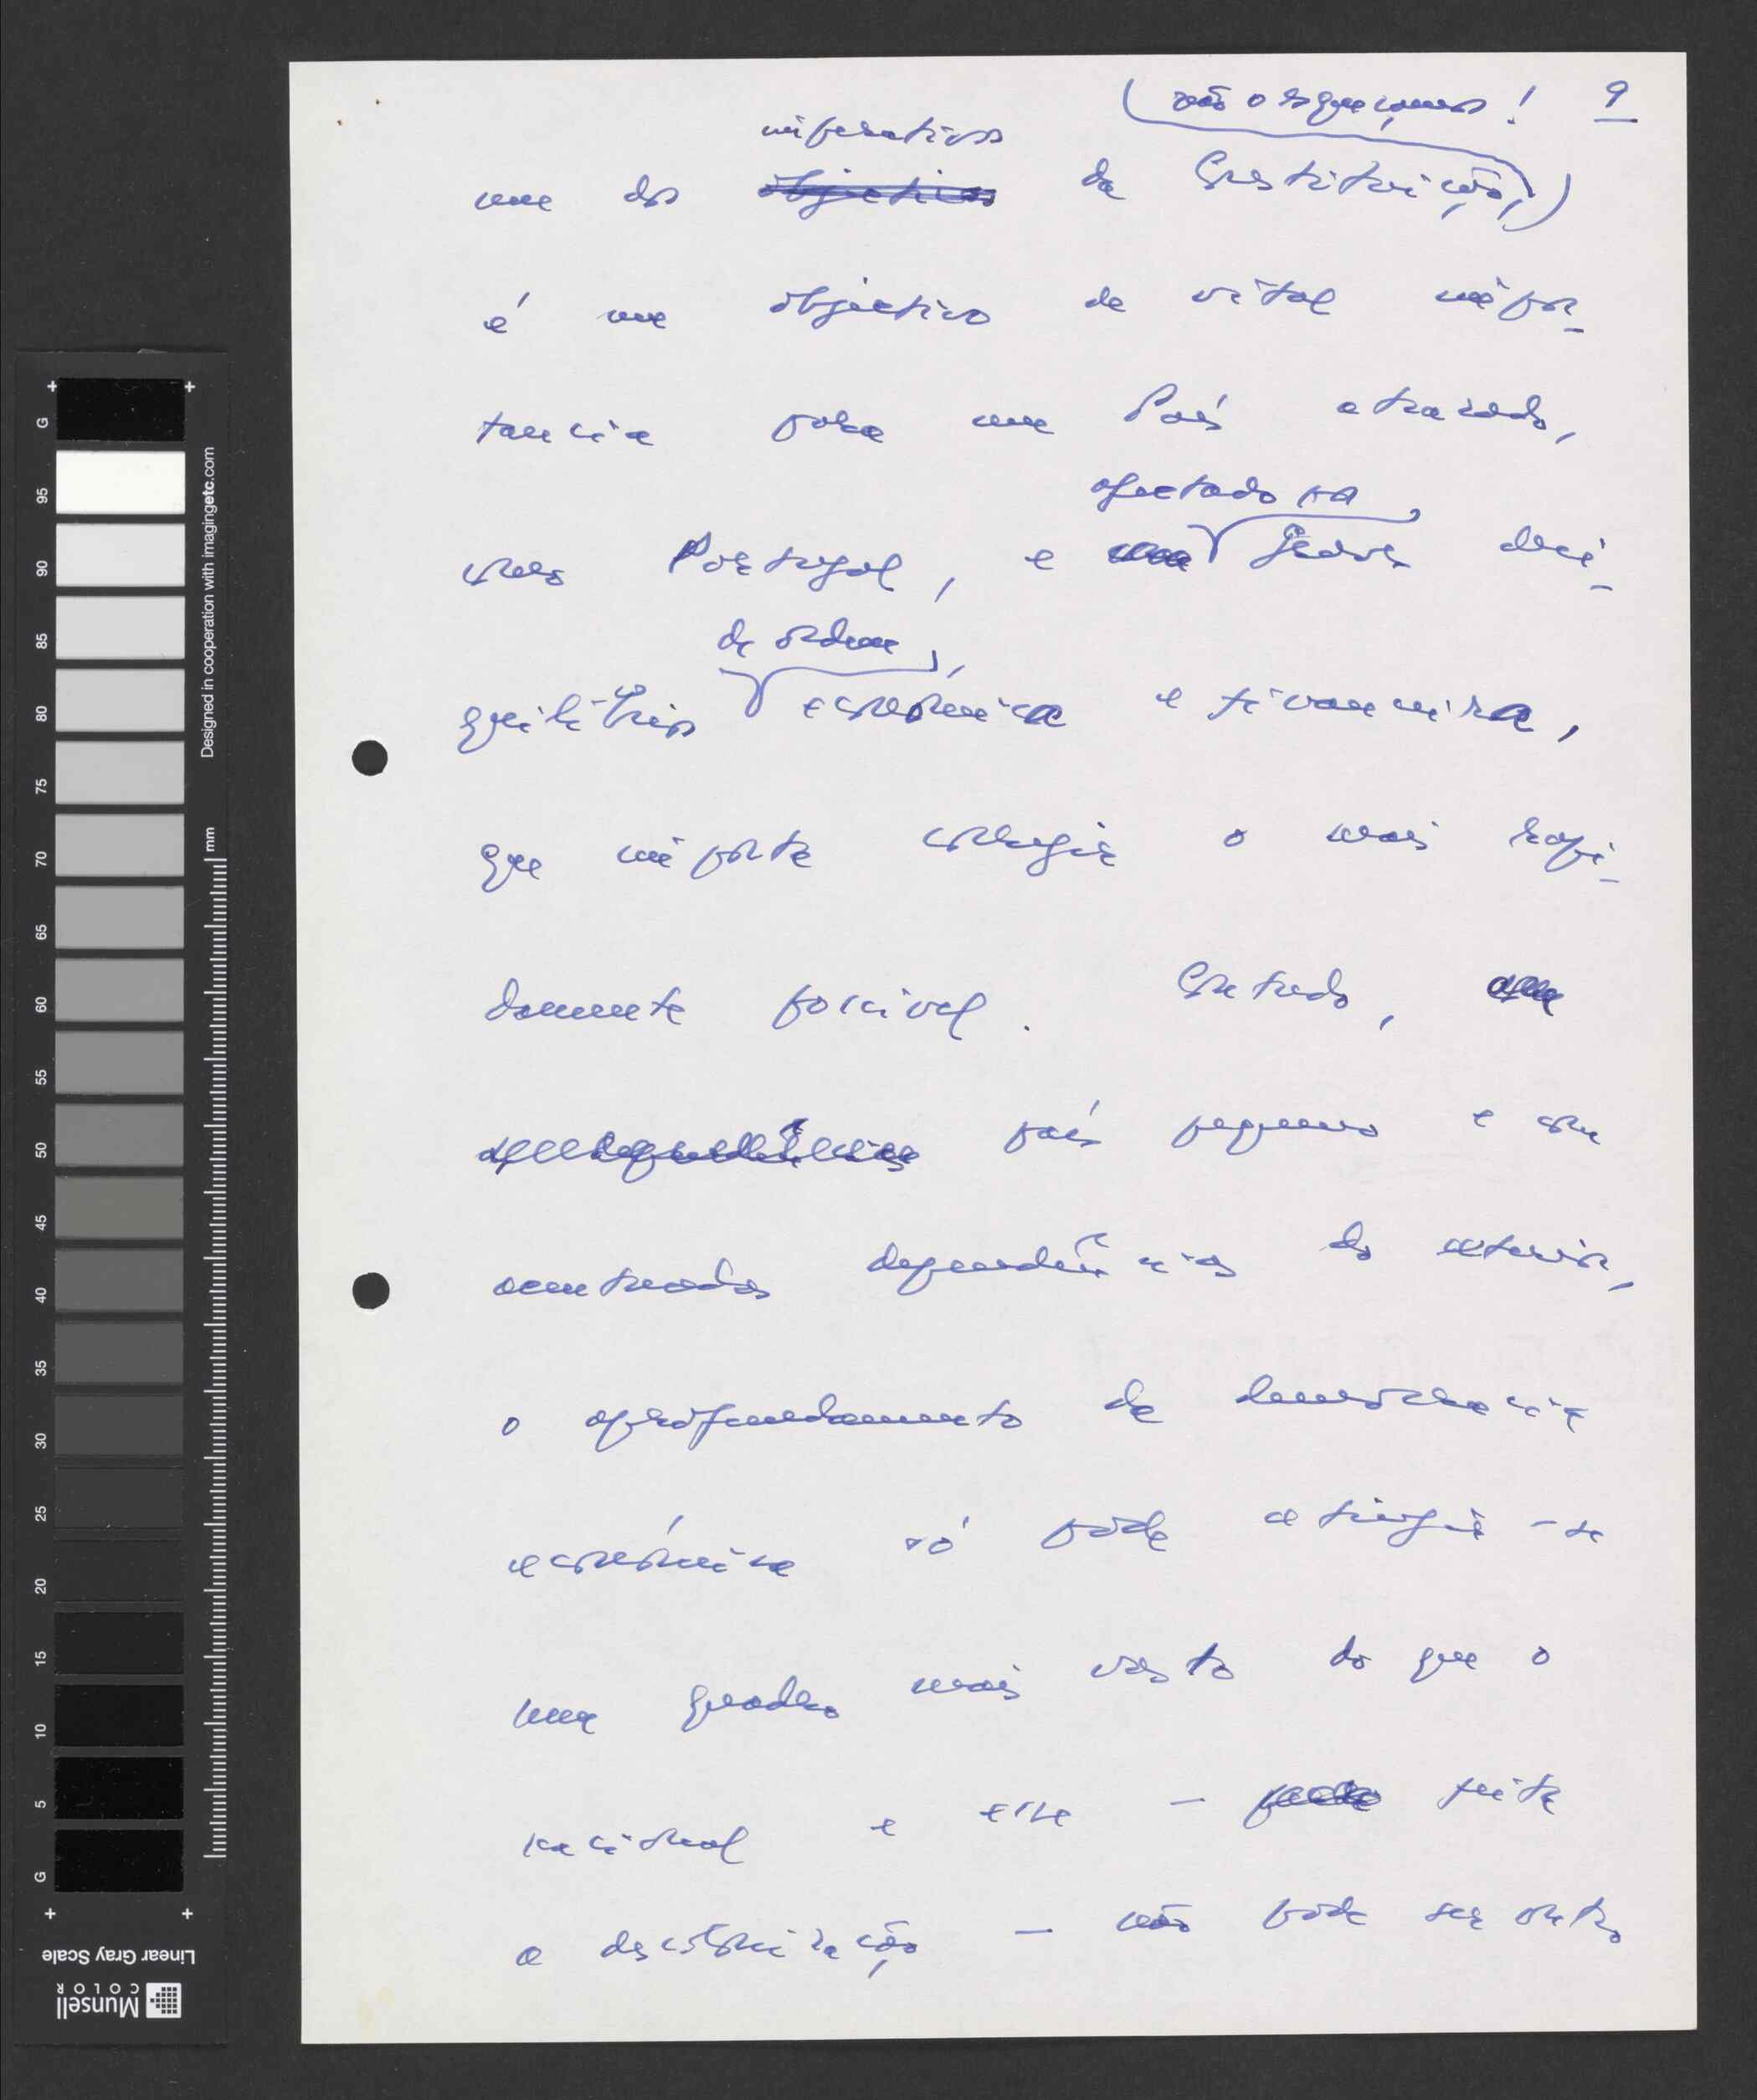 (não o esqueçamos! 9
imperativos
um dos objectivos da Constituição,)
é um objectivo de vital impor-
tancia para um País atrasado,
afectado por
como Portugal, e com graves dese-
de ordem,
quilíbrios económica e financeira,
que importa corrigir o mais rapi-
damente possivel. Contudo,
país pequeno e com
acentuadas dependências do exterior,
o aprofundamento da democracia
económica só pode atingir-se
num quadro mais vasto do que o
nacional e esse — feita
a descolonização — não pode ser outro
G 95 90 85 80 75 70 65 60 55 50 45 40 35 30 25 20 15 10 5 G
Designed in cooperation with imagingetc.com
mm
Linear Gray Scale
Munsell
COLOR